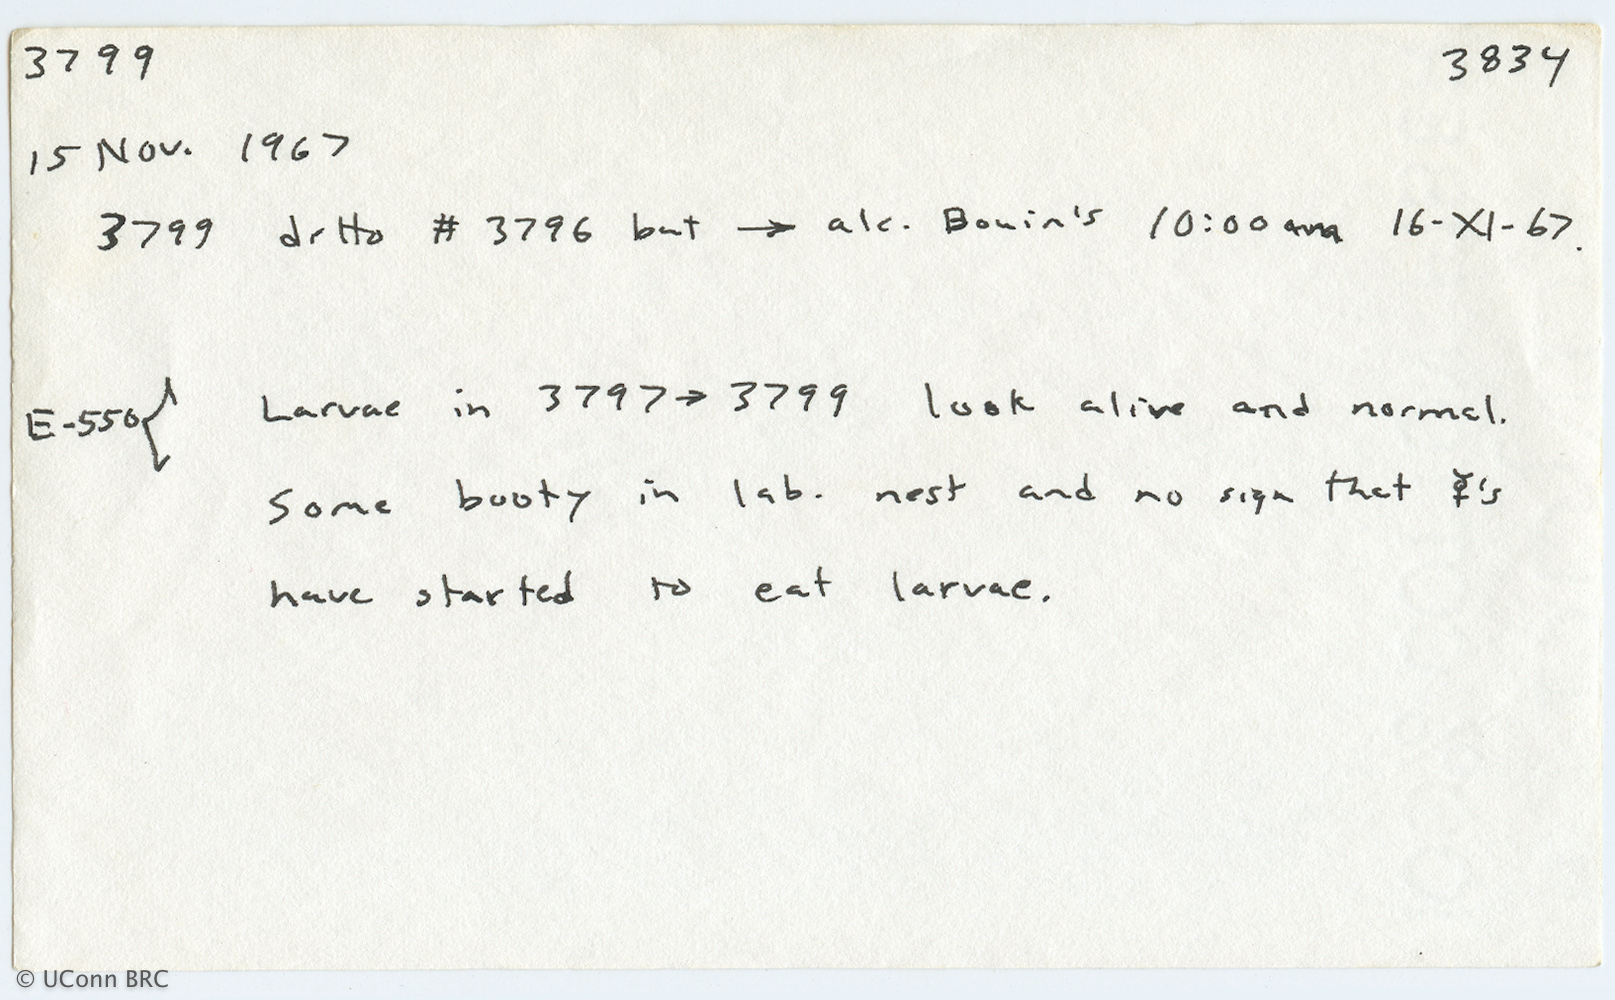 3799 3834
15 Nov. 1967
3799 ditto # 3796 but → alc. Bouin's 10:00 am 16-XI-67.
E-550{ Larvae in 3797→3799 look alive and normal.
Some booty in lab. nest and no sign that ☿'s
have started to eat larvae.
© UConn BRC